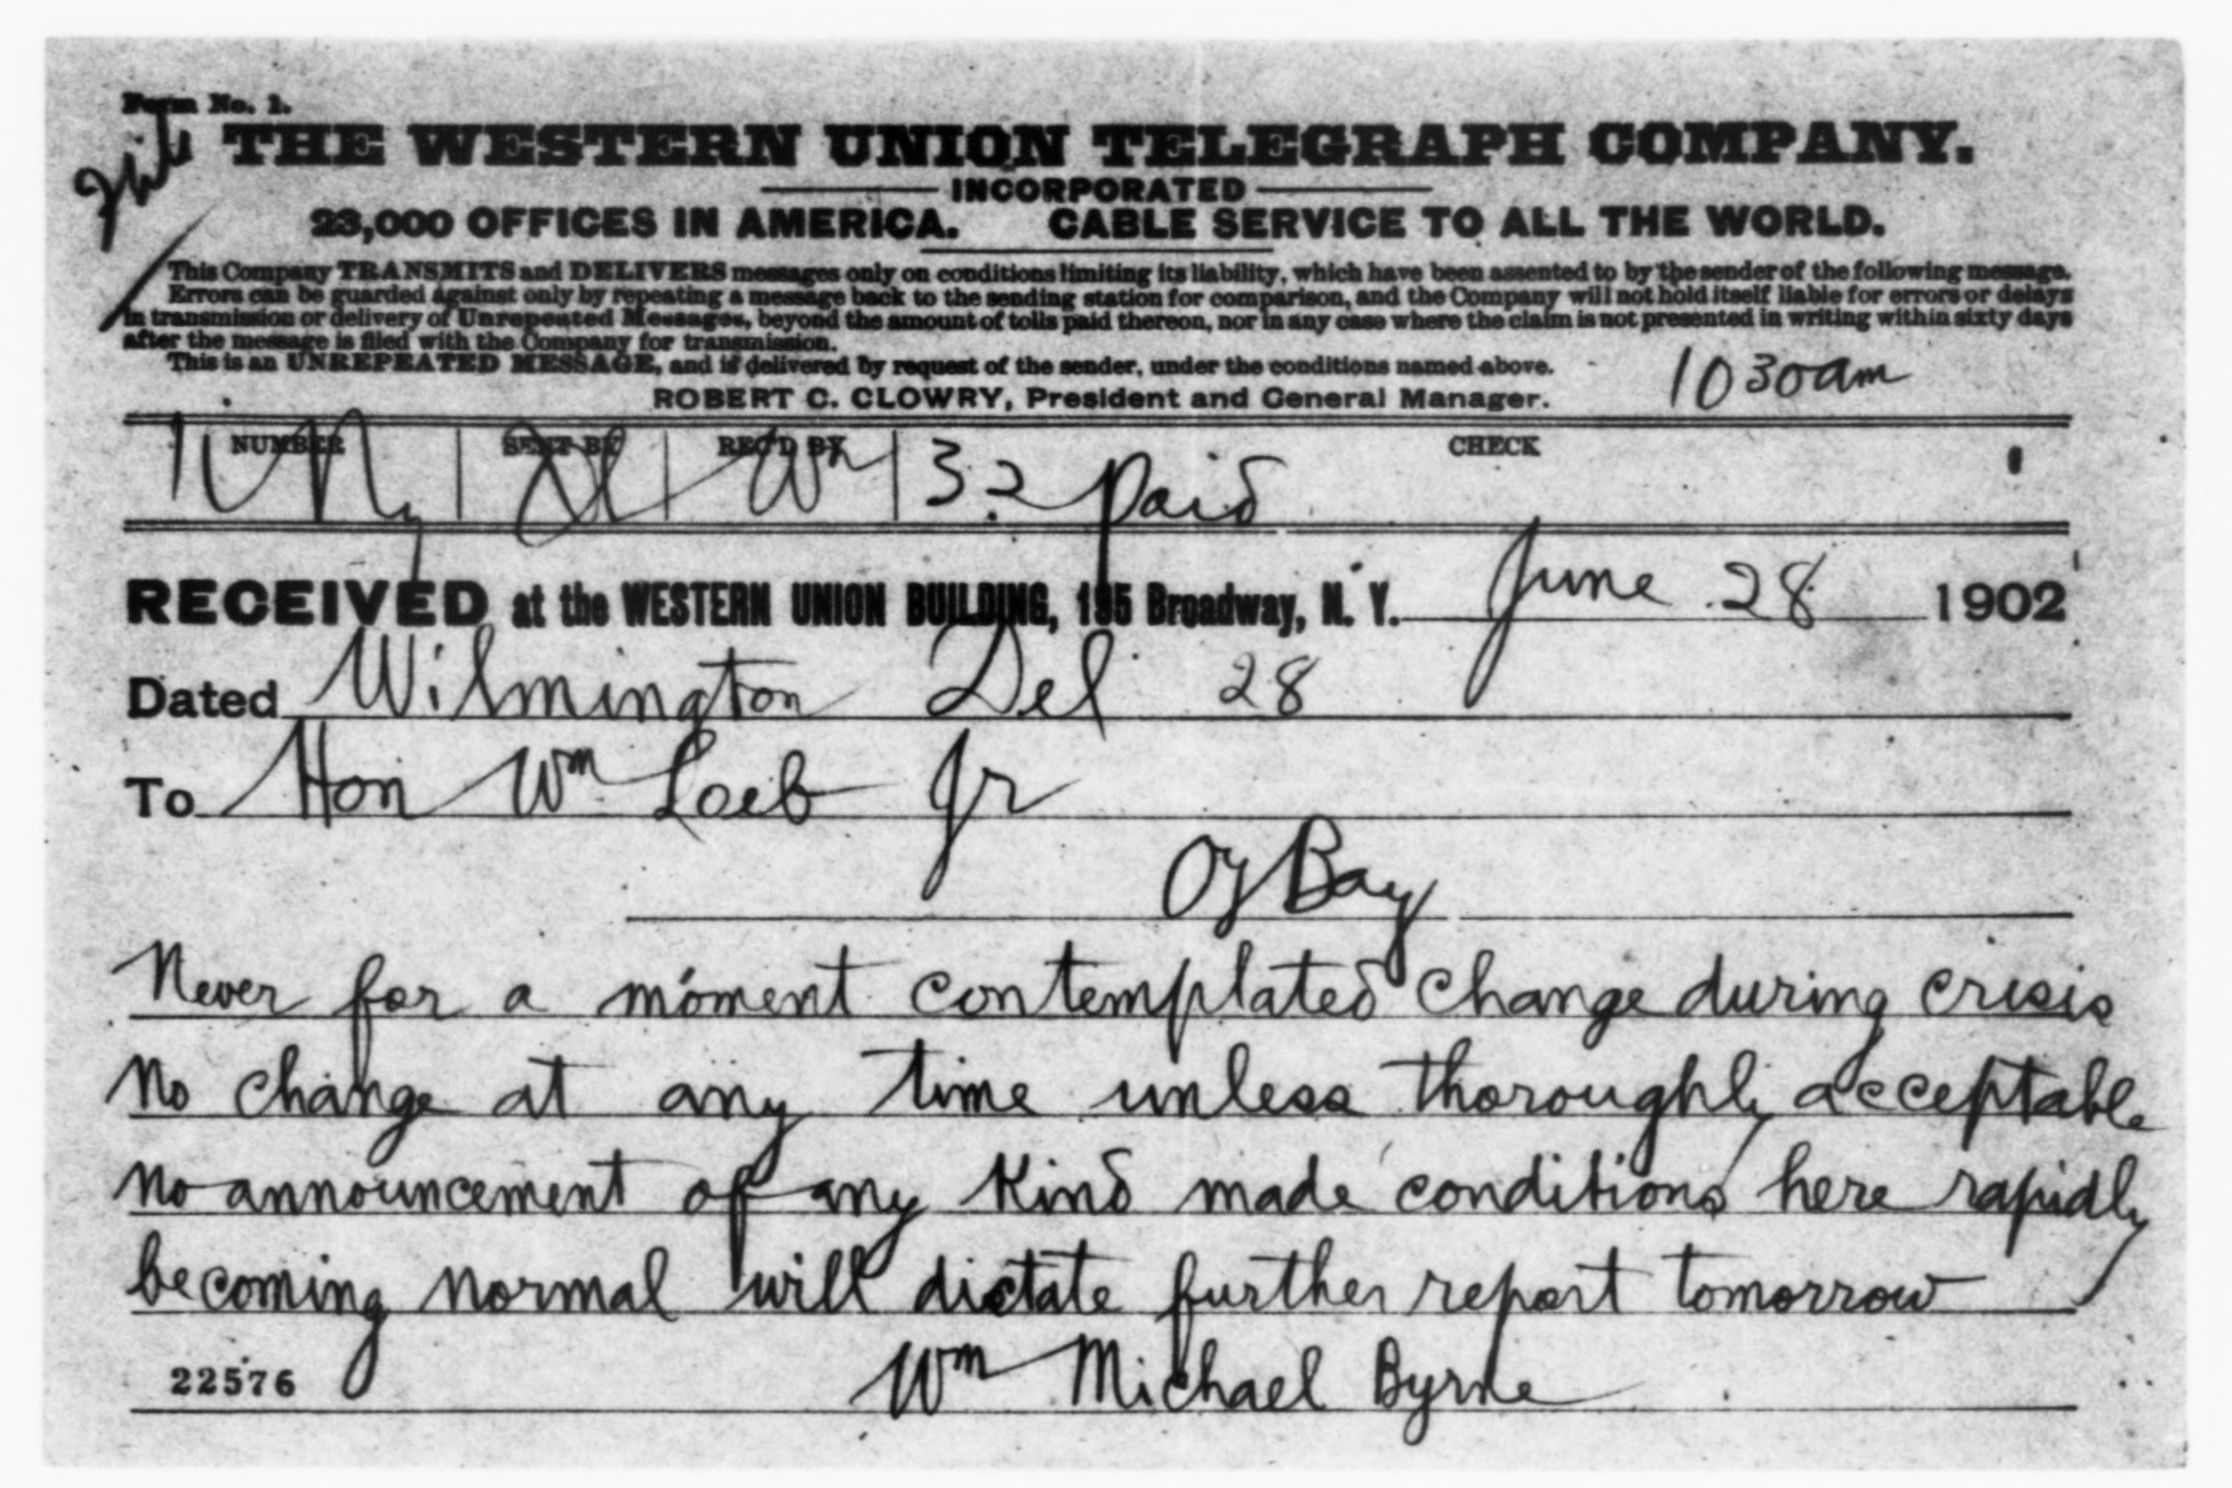 Form No. 1.
THE WESTERN UNION TELEGRAPH COMPANY.
INCORPORATED
23,000 OFFICES IN AMERICA. CABLE SERVICE TO ALL THE WORLD.
This Company TRANSMITS and DELIVERS messages only on conditions limiting its liability, which have been assented to by the sender of the following message.
Errors can be guarded against only by repeating a message back to the sending station for comparison, and the Company will not hold itself liable for errors or delays
in transmission or delivery of Unrepeated Messages, beyond the amount of tolls paid thereon, nor in any case where the claim is not presented in writing within sixty days
after the message is filed with the Company for transmission.
This is an UNREPEATED MESSAGE, and is delivered by request of the sender, under the conditions named above.
1030am
ROBERT C. CLOWRY, President and General Manager.
NUMBER SENT BY REC'D BY CHECK
32 paid
RECEIVED at the WESTERN UNION BUILDING, 195 Broadway, N. Y. June 28 1902
Dated Wilmington Del 28
To Hon Wm Loeb Jr
Oy Bay
Never for a moment contemplated change during crisis
no change at any time unless thoroughly acceptable
no announcement of any kind made conditions here rapidly
becoming normal will dictate further report tomorrow
Wm Michael Byrne
22576